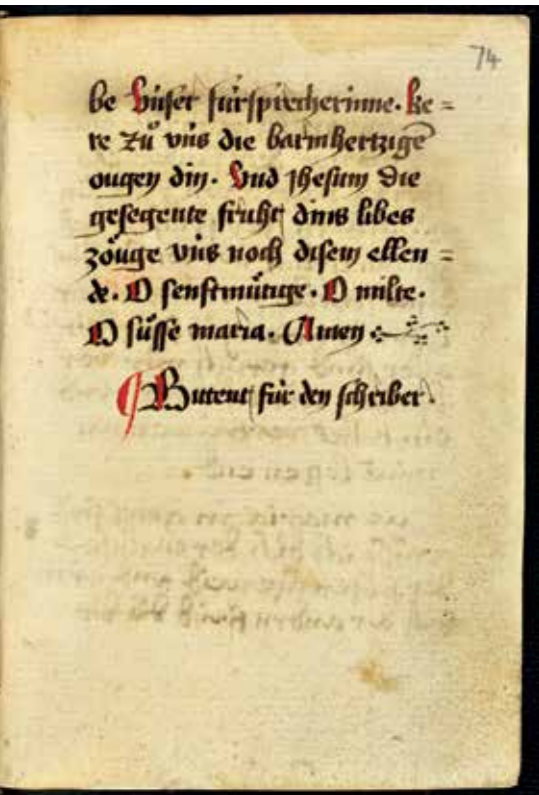 74
be Vnser fürsprecherinne. ke =
re zů vns die barmhertzigē
ougen din. Vnd Jhesum die
gesegente fruht dins libes
zöuge vns noch disem ellen =
de. O senftmütige. O milte.
O süsse maria. Amen
Bittent für den schriber.